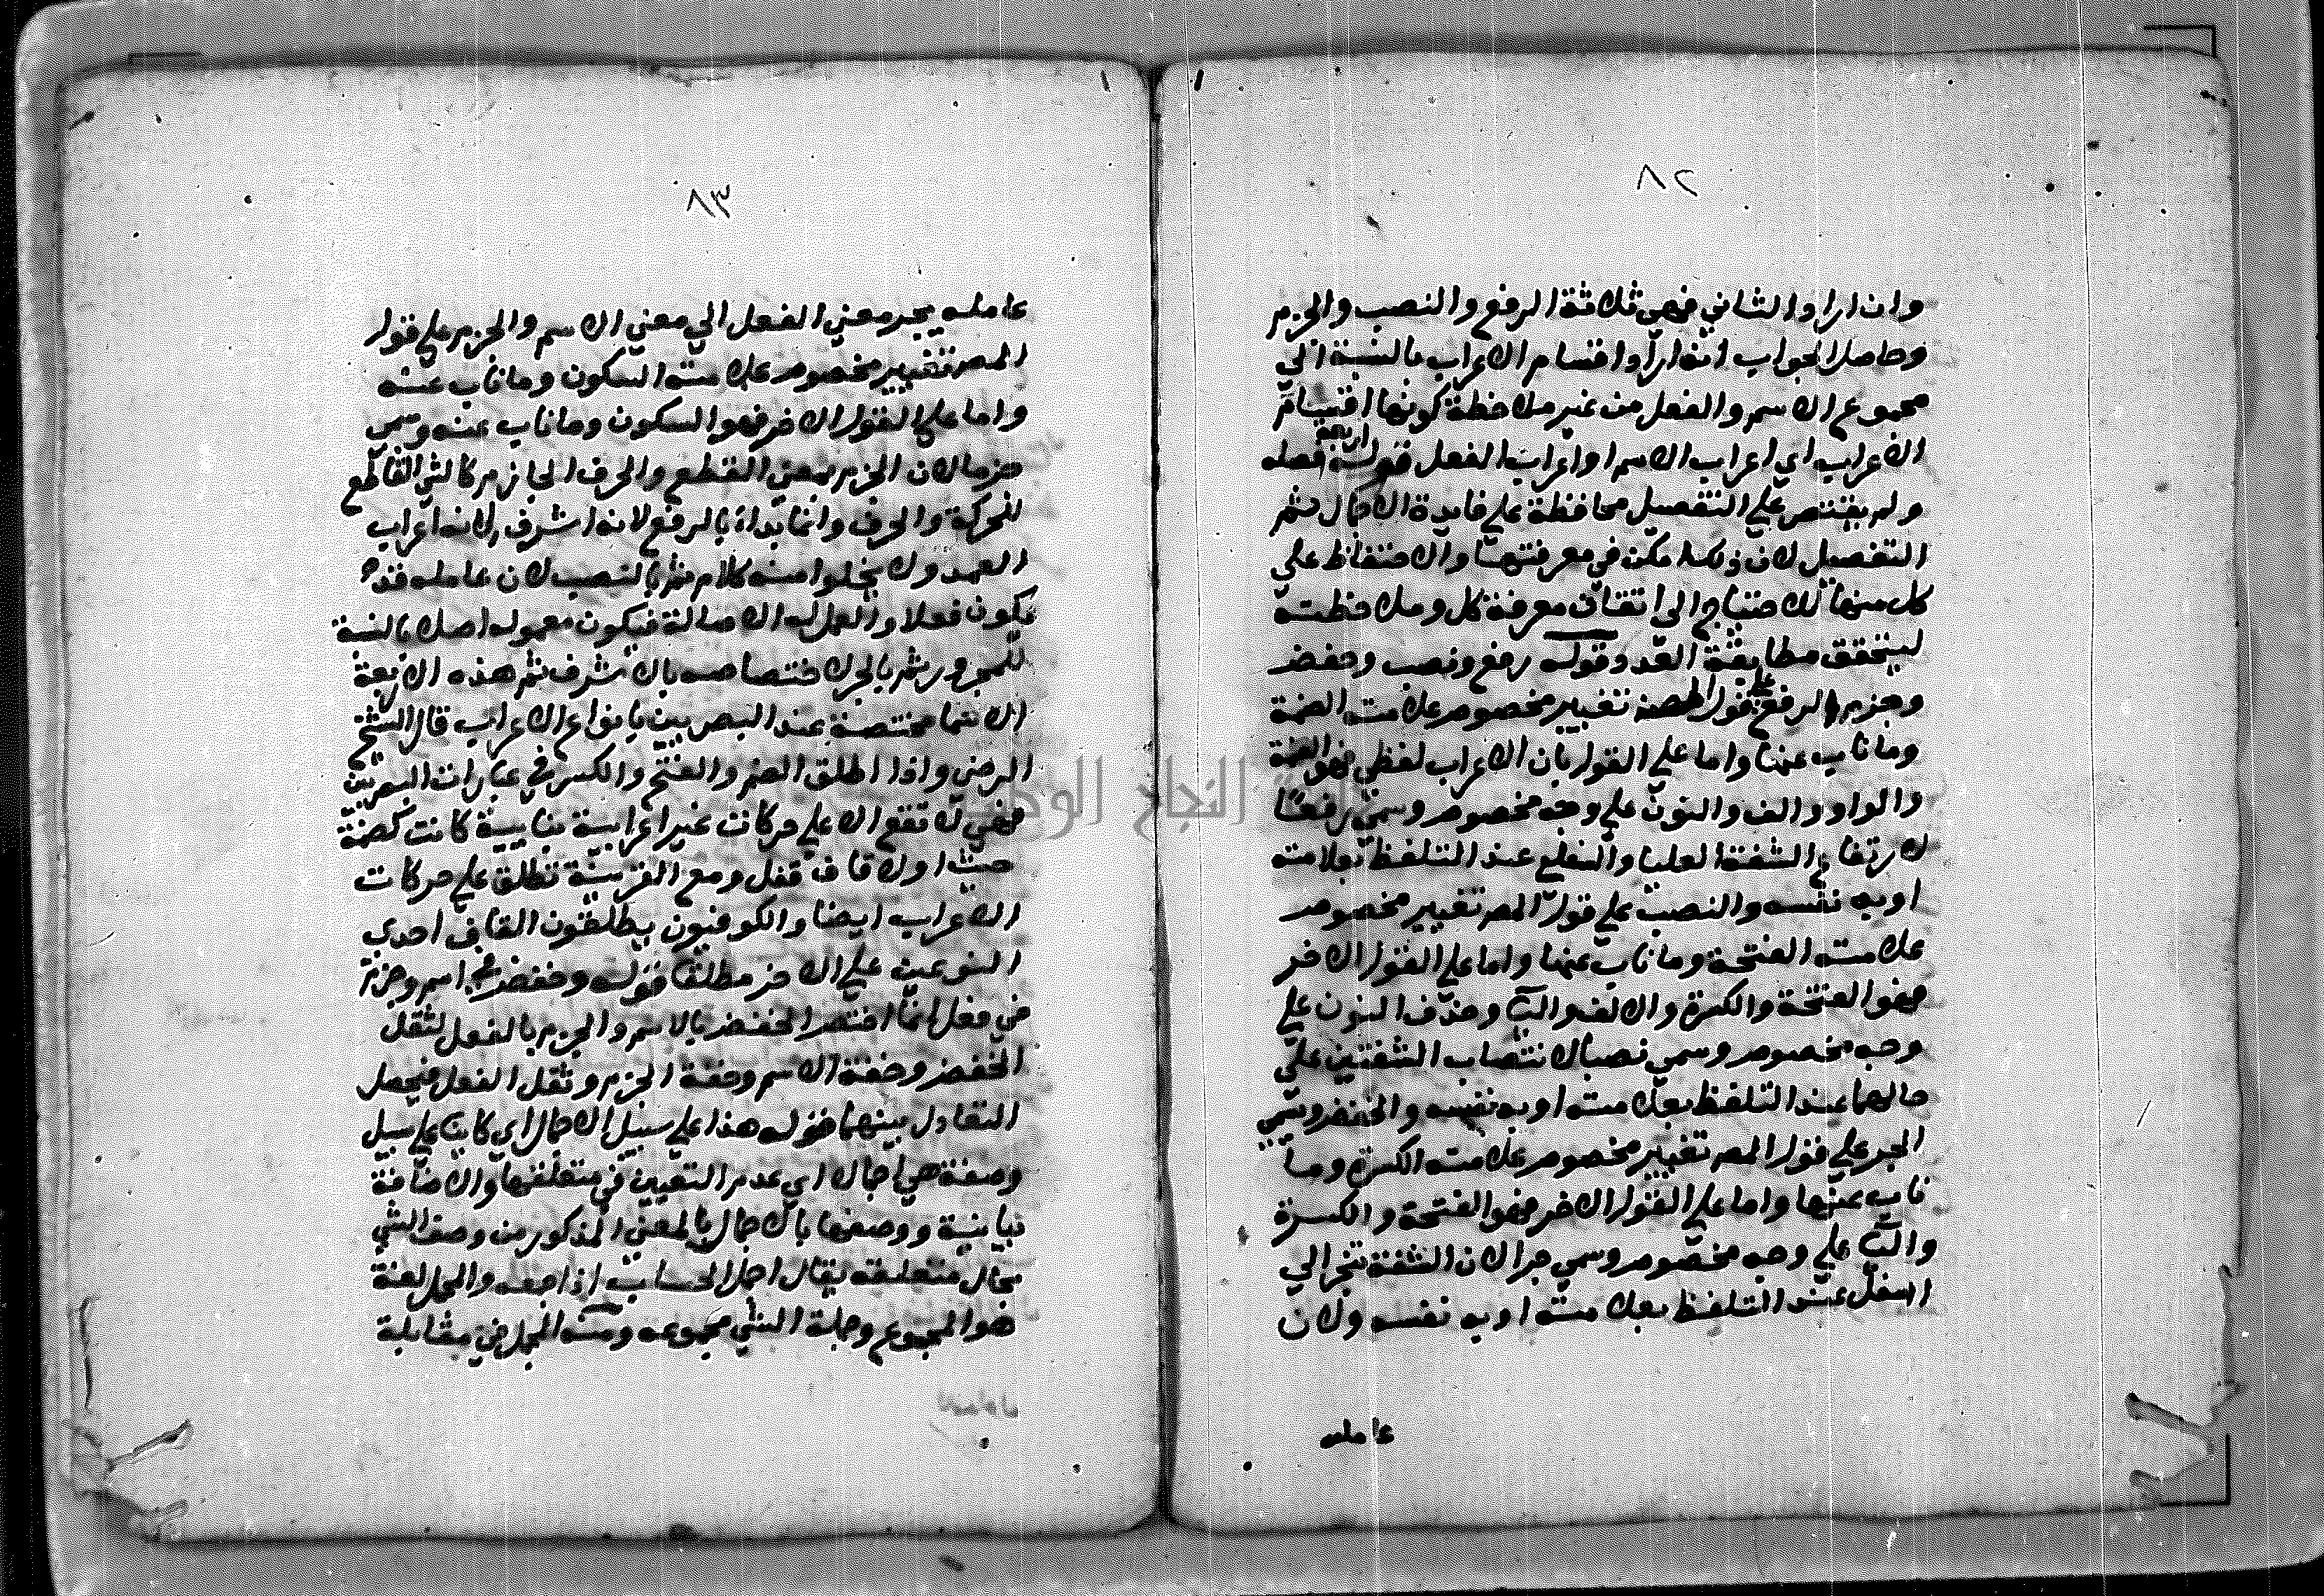 ٨٢
وان اراد الثاني فهي ثلاثة الرفع والنصب والجزم
وحاصل الجواب انه اراد اقسام الاعراب بالنسبة الى
مجموع الاسم والفعل من غير ملاحظة كونها اقسام
الاعراب اي اعراب الاسم او اعراب الفعل قوله اربعة فصله
ولم يقتصر على التفصيل محافظة على فايدة الاجمال ثم
التفصيل لان ذلك امكن في معرفتها والاحتفاظ على
كل منها للاحتياج الى اتقان معرفة كل وملاحظته
ليتحقق مطابقة العدد وقوله رفع ونصب وخفض
وجزم الرفع على قول المص تغيير مخصوص علامته الضمة
وما ناب عنها واما على القول بان الاعراب لفظي فهو الضمة
والواو والف والنون على وجه مخصوص وسمي رفعا
لارتفاع الشفة العليا والسفلى عند التلفظ بعلامته
او به نفسه والنصب على قول المص تغيير مخصوص
علامته الفتحة وما ناب عنها واما على القول الاخر
فهو الفتحة والكسرة والالف واليآ وحذف النون على
وجه مخصوص وسمي نصبا لانتصاب الشفتين على
حالهما عند التلفظ بعلامته او به نفسه والخفض وسمي
الجر على قول المص تغيير مخصوص علامته الكسرة وما
ناب عنها واما على القول الاخر فهو الفتحة والكسرة
واليآ على وجه مخصوص وسمي جرا لان الشفة تنجر الى
اسفل عند التلفظ بعلامته او به نفسه ولان
عامله
٨٣
عامله يجر معني الفعل الي معني الاسم والجزم على قول
المص تغيير مخصوص علامته السكون وما ناب عنه
واما على القول الاخر فهو السكون وما ناب عنه وسمي
جزما لان الجزم بمعني القطع والحرف الجازم كالشي القاطع
للحركة والحرف وانما بداء بالرفع لانه اشرف لانه اعراب
العمد ولا يخلوا منه كلام ثم بالنصب لان عامله قد
يكون فعلا والعمل له الاصالة فيكون معموله اصلا بالنسبة
للمجرور ثم بالجر لاختصاصه بالاشرف ثم هذه الاربعة
الاسما مختصة عند البصريين بانواع الاعراب قال الشيخ
الرضي واذا اطلق الضم والفتح والكسر في عبارات البصريين
فهي لا تقع الا على حركات غير اعرابية بنايية كانت كضمة
حيث اولا قاف قفل ومع القرينة تطلق على حركات
الاعراب ايضا والكوفيون يطلقون القاب احدى
النوعين على الاخر مطلقا قوله وخفض في اسم وجزم
في فعل انما اختص الخفض بالاسم والجزم بالفعل لثقل
الخفض وخفة الاسم وخفة الجزم وثقل الفعل فيحصل
التعادل بينهما قوله هذا على سبيل الاجمال اي كاينا على سبيل
وصفة هي اجمال اي عدم التعيين في متعلقها والاضافة
بيانية ووصفها بالاجمال بالمعني المذكور من وصف الشي
بحال متعلقه يقال اجمل الحساب اذا جمعه والمجمل لغة
هو المجموع وجملة الشي مجموعه ومنه المجمل في مقابلة